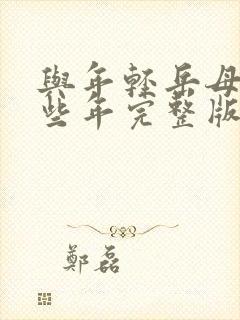 與年輕岳母
些年完整版
鄭磊